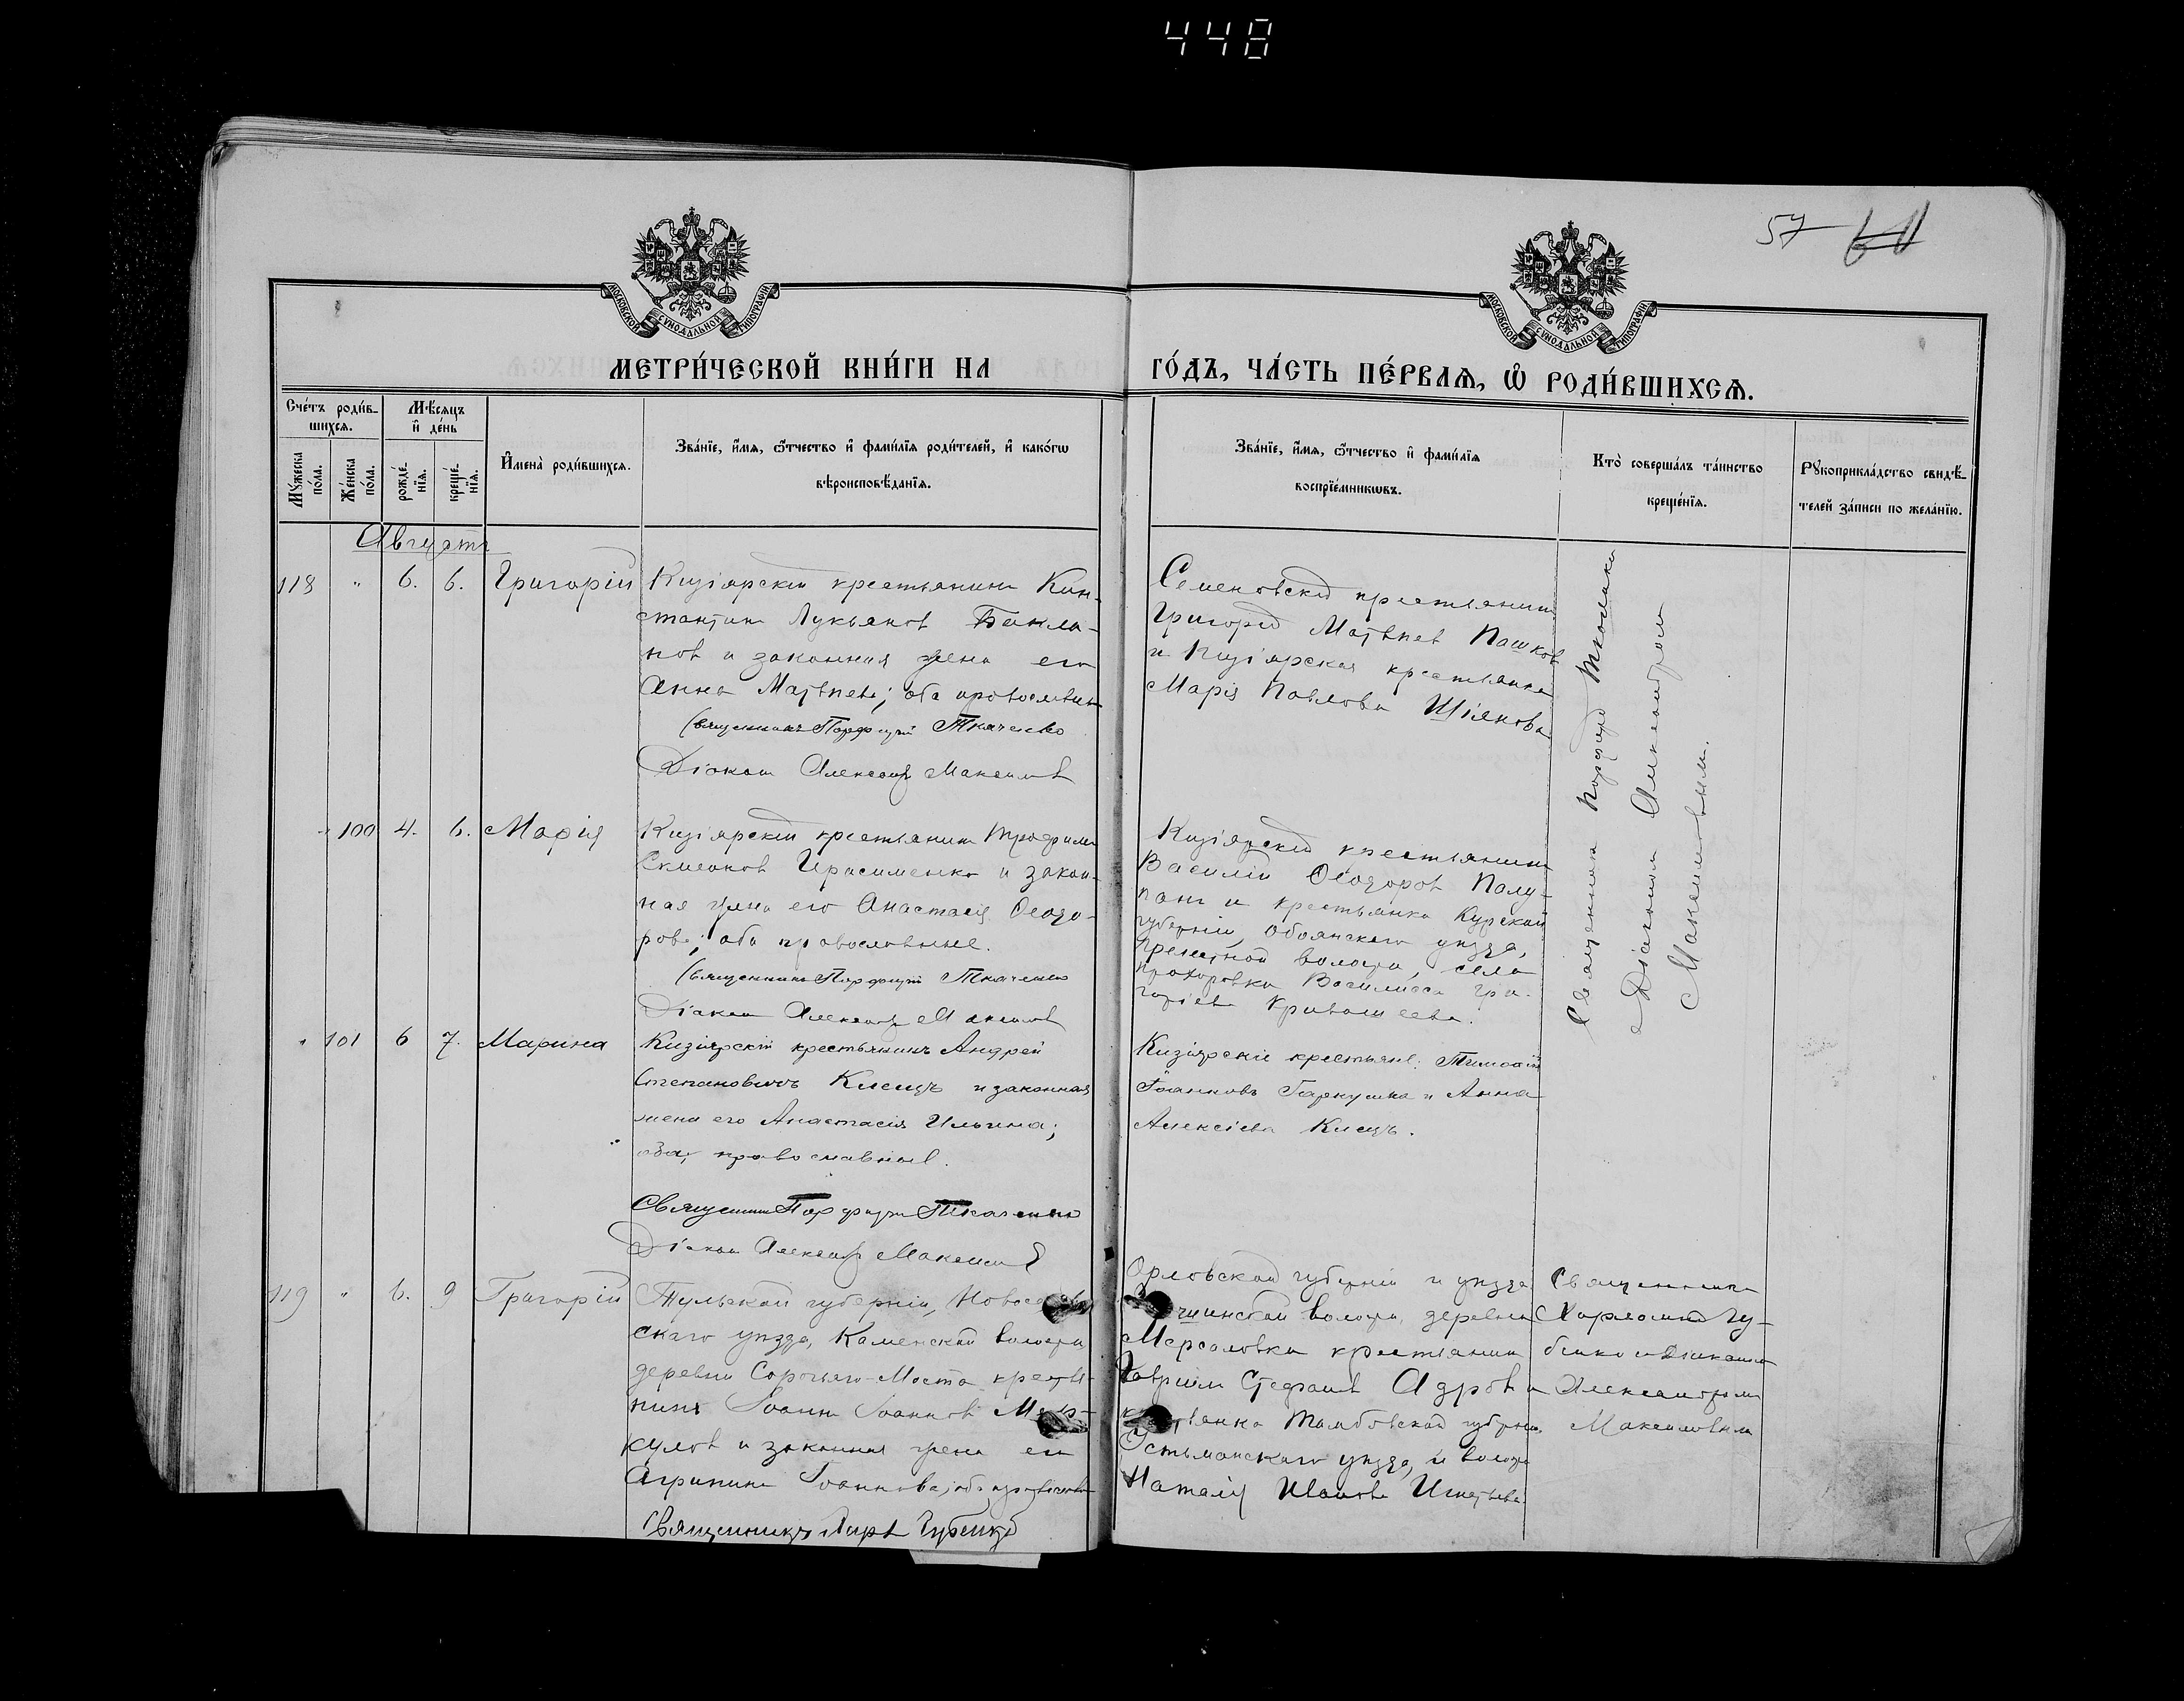 448
57
МОСКОВСКОЙ СѴНОДАЛЬНОЙ ТИПОГРАФІИ
МОСКОВСКОЙ СѴНОДАЛЬНОЙ ТИПОГРАФІИ
МЕТРИ́ЧЕСКОЙ КНИ́ГИ НА ГО́ДЪ, ЧА́СТЬ ПЕ́РВАѦ, Ѡ҆ РОДИ́ВШИХСѦ.
Сче́тъ роди́вшихсѧ.
Мꙋ́жеска по́ла.
Же́нска по́ла.
Мѣ́сѧцъ и҆ де́нь
рожде́нїѧ.
креще́нїѧ.
И҆мена̀ роди́вшихсѧ.
Зва́нїе, и҆́мѧ, ѻ҆́тчество и҆ фами́лїѧ роди́телей, и҆ како́гѡ
вѣроисповѣ́данїѧ.
Зва́нїе, и҆́мѧ, ѻ҆́тчество и҆ фами́лїѧ
воспрїе́мникѡвъ.
Кто̀ соверша́лъ та́инство
креще́нїѧ.
Рꙋкоприкла́дство свидѣ́-
телей за́писи по жела́нїю.
Августъ
118 " 6. 6. Григорій
Кизіярскій крестьянинъ Кон-
стантинъ Лукьяновъ Бакла-
новъ и законная жена его
Анна Матвѣева; оба православные
Священникъ Порфирій Ткаченко
Діаконъ Александръ Максимовъ
Семеновскій крестьянинъ
Григорій Матвѣевъ Пашковъ
и Кизіярская крестьянка
Марія Павлова Шіянова
Священникъ Порфирій Ткаченко
съ Діакономъ Александромъ
Максимовымъ.
" 100 4. 6. Марія
Кизіярскій крестьянинъ Трофимъ
Герасименко и закон-
ная жена его Анастасія Ѳеодо-
рова; оба православные.
Священникъ Порфирій Ткаченко
Діаконъ Александръ Максимовъ
Кизіярскій крестьянинъ
Василій Ѳеодоровъ
и крестьянка Курской
губерніи, Обоянскаго уѣзда,
волости, села
Прохоровки Василисса Гри-
горіева Кривошеева.
" 101 6 7. Марина
Кизіярскій крестьянинъ Андрей
Степановичъ Клецъ и законная
жена его Анастасія Ильина;
оба православные.
Священникъ Порфирій Ткаченко
Діаконъ Александръ Максимовъ
Кизіярскіе крестьяне: Тимоѳей
Іоанновъ Гаркуша и Анна
Алексіева Клецъ.
119 " 6. 9 Григорій
Тульской губерніи,
скаго уѣзда, Каменской волости
деревни Сорочьяго-Моста крестья-
нинъ Іоаннъ Іоанновъ Мер-
куловъ и законная жена его
Агрипина Іоаннова; оба православные
Священникъ Губенко
Орловской губерніи и уѣзда
волости, деревни
крестьянинъ
Гавріилъ Стефановъ и
крестьянка Тамбовской губерніи
Усманскаго уѣзда, и волости
Наталія Иванова Игнатьева.
Священникъ
Харлампій Гу-
бенко съ Діакономъ
Александромъ
Максимовымъ